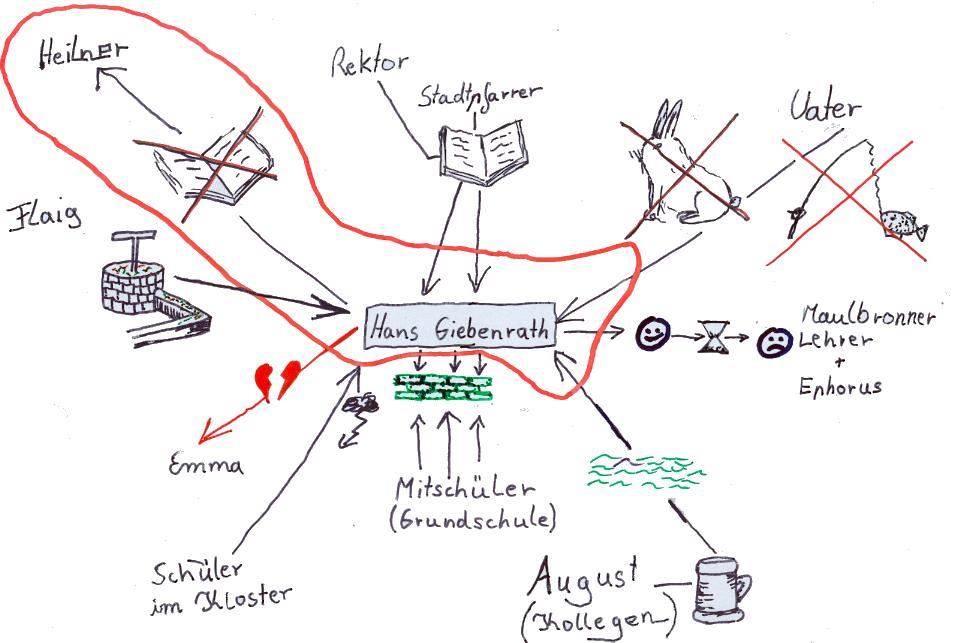 Heilner
Rektor
Stadtpfarrer
Vater
Flaig
Hans Giebenrath
Maulbronner
Lehrer
+
Ephorus
Emma
Mitschüler
(Grundschule)
Schüler
im Kloster
August
(Kollegen)